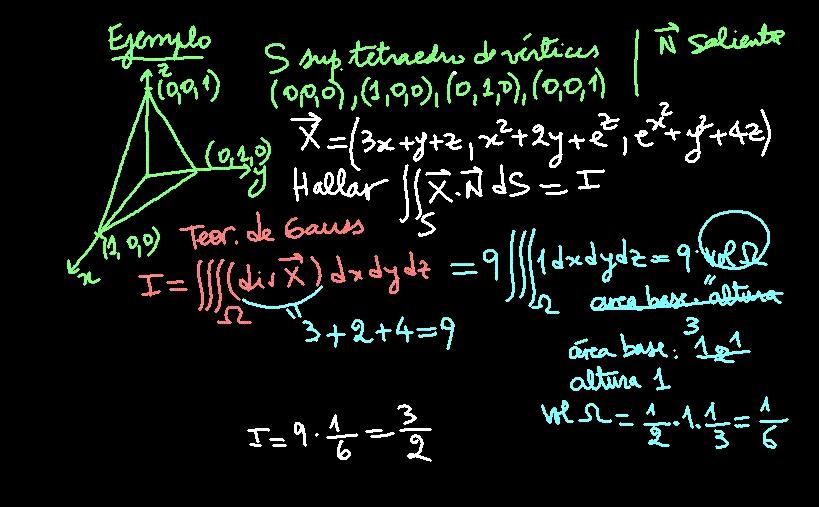 Ejemplo
S sup. tetraedro de vértices | N⃗ saliente
(0,0,0), (1,0,0), (0,1,0), (0,0,1)
z
(0,0,1)
(0,1,0)
y
(1,0,0)
x
X⃗ = (3x+y+z, x²+2y+e^z, e^x²+y²+4z)
Hallar ∬_S X⃗·N⃗ dS = I
Teor. de Gauss
I = ∭_Ω (div X⃗) dxdydz = 9 ∭_Ω 1 dxdydz = 9·vol Ω
3+2+4=9
área base · altura
3
área base: 1·1/2
altura 1
vol Ω = 1/2·1·1/3 = 1/6
I = 9·1/6 = 3/2